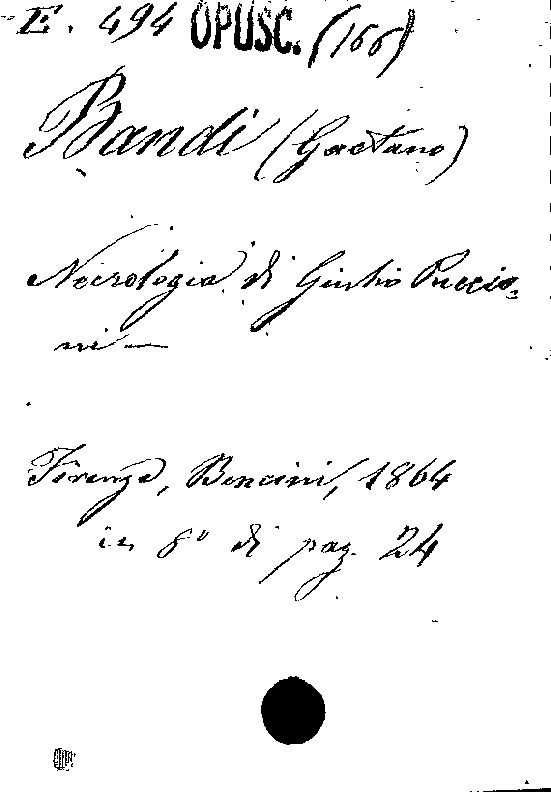 E. 494 OPUSC. (166)
Bandi (Gaetano)
Necrologia di Giulio Puccio-
ni —
Firenze, Bencini, 1864
in 8° di pag. 24